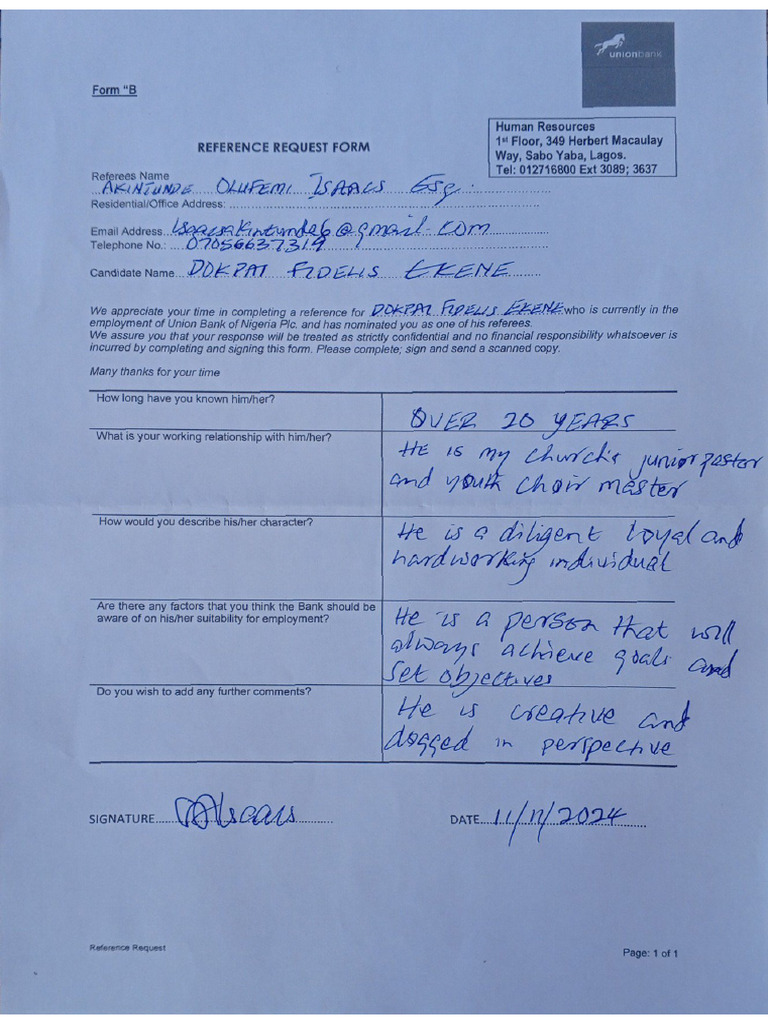 unionbank
Form "B
Human Resources
1st Floor, 349 Herbert Macaulay
Way, Sabo Yaba, Lagos.
Tel: 012716800 Ext 3089; 3637
REFERENCE REQUEST FORM
Referees Name
AKINTUNDE OLUFEMI ISAACS Esq.
Residential/Office Address:
Email Address isaacsakintunde6@gmail.com
Telephone No.: 07056637319
Candidate Name DOKPAI FIDELIS EKENE
We appreciate your time in completing a reference for DOKPAI FIDELIS EKENE who is currently in the
employment of Union Bank of Nigeria Plc. and has nominated you as one of his referees.
We assure you that your response will be treated as strictly confidential and no financial responsibility whatsoever is
incurred by completing and signing this form. Please complete; sign and send a scanned copy.
Many thanks for your time
How long have you known him/her?
OVER 20 YEARS
What is your working relationship with him/her?
HE is my church's junior pastor
and youth choir master
How would you describe his/her character?
He is a diligent loyal and
hardworking individual
Are there any factors that you think the Bank should be
aware of on his/her suitability for employment?
He is a person that will
always achieve goals and
set objectives
Do you wish to add any further comments?
He is creative and
dogged in perspective
SIGNATURE Isaacs
DATE 11/11/2024
Reference Request
Page: 1 of 1